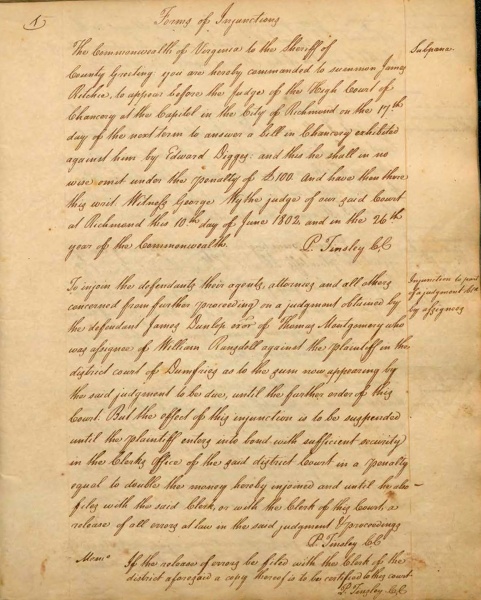 1
Forms of Injunctions
Subpœna.
The Commonwealth of Virginia to the Sheriff of
County Greeting you are hereby commanded to summon James
Ritchie, to appear before the Judge of the High Court of
Chancery at the Capitol in the City of Richmond on the 17th
day of the next term to answer a bill in Chancery exhibited
against him by Edward Digges: and this he shall in no
wise omit under the penalty of £100. And have then there
this writ. Witness George Wythe judge of our said Court
at Richmond this 10th day of June 1802, and in the 26th
year of the Commonwealth. P. Tinsley C C
Injunction to part
of a judgment
by assignees
To injoin the defendants their agents, attornies and all others
concerned from further proceeding on a judgment obtained by
the defendant James Dunlop exor of Thomas Montgomery who
was assignee of William Ransdell against the plaintiff in the
district court of Dumfries as to the sum now appearing by
the said judgment to be due, until the further order of this
Court. But the effect of this injunction is to be suspended
until the plaintiff enters into bond with sufficient security
in the Clerks Office of the said district Court in a penalty
equal to double the money hereby enjoined and until he also
files with the said Clerk, or with the Clerk of this Court, a
release of all errors at law in the said judgment & proceedings
P. Tinsley C C
Memo If the release of errors be filed with the Clerk of the
district aforesaid a copy thereof is to be certified to this court
P. Tinsley C.C